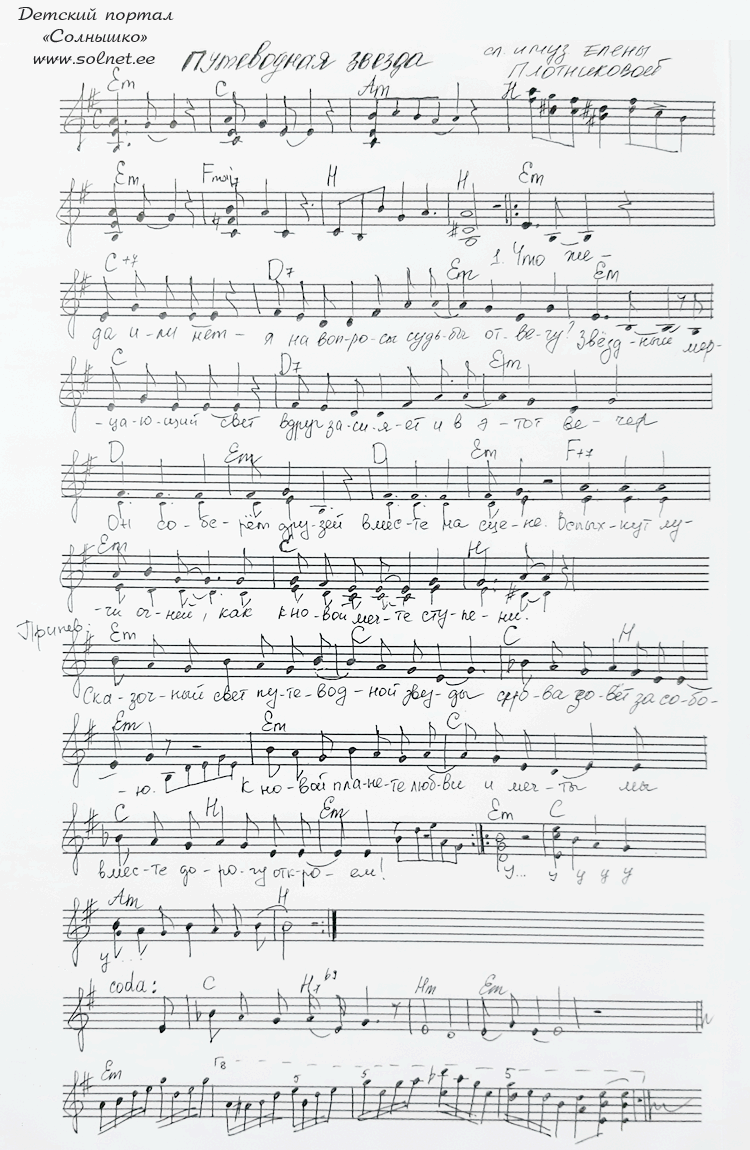 Детский портал
«Солнышко»
www.solnet.ee
Путеводная звезда
сл. и муз Елены
Плотниковой
Em C Am H
Em Fmaj7 H H Em
1. Что же -
C+7 D7 Em Em
да и-ли нет - я на воп-ро-сы судь-бы от-ве-чу? Звёзд-ный мер-
C D7 Em
-ца-ю-щий свет вдруг за-си-я-ет и в э-тот ве-чер
D Em D Em F+7
Он со-бе-рёт дру-зей вмес-те на сце-не. Вспых-нут лу-
Em C H
-чи ог-ней, как к но-вой меч-те сту-пе-ни.
Припев:
Em C C H
Ска-зоч-ный свет пу-те-вод-ной звез-ды сно-ва зо-вёт за со-бо-
Em Em C
-ю. К но-вой пла-не-те люб-ви и меч-ты мы
C H Em Em C
вмес-те до-ро-гу отк-ро-ем! У... у у у у
Am H
у...
coda: C H7 b9 Hm Em
Em 5 5 5